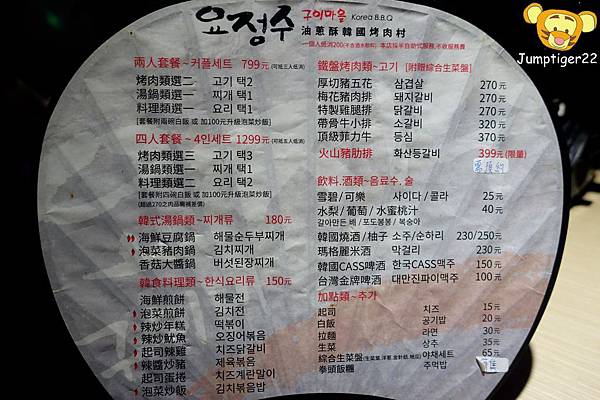 Jumptiger22
요정수 구이마을 Korea B.B.Q
油蔥酥韓國烤肉村
一個人低消200(不含酒水飲料) 本店採半自助式服務,不收服務費
兩人套餐~커플세트 799元 (可抵三人低消)
烤肉類選二 고기 택2
湯鍋類選一 찌개 택1
料理類選一 요리 택1
[套餐附兩碗白飯 或 加100元升級泡菜炒飯]
四人套餐~4인세트 1299元 (可抵五人低消)
烤肉類選三 고기 택3
湯鍋類選一 찌개 택1
料理類選二 요리 택1
[套餐附四碗白飯 或 加100元升級泡菜炒飯]
(超過270之肉品需補差價)
韓式湯鍋類~찌개류 180元
海鮮豆腐鍋 해물순두부찌개
泡菜豬肉鍋 김치찌개
香菇大醬鍋 버섯된장찌개
韓食料理類~한식요리류 150元
海鮮煎餅 해물전
泡菜煎餅 김치전
辣炒年糕 떡볶이
辣炒魷魚 오징어볶음
起司辣雞 치즈닭갈비
辣醬炒豬 제육볶음
起司蛋捲 치즈계란말이
泡菜炒飯 김치볶음밥
鐵盤烤肉類~고기 [附贈綜合生菜盤]
厚切豬五花 삼겹살 270元
梅花豬肉排 돼지갈비 270元
特製雞腿排 닭갈비 270元
帶骨牛小排 소갈비 320元
頂級菲力牛 등심 370元
火山豬肋排 화산등갈비 399元(限量)
需預約
飲料.酒類~음료수. 술
雪碧/可樂 사이다/콜라 25元
水梨/葡萄/水蜜桃汁 40元
갈아만든 배/포도봉봉/복숭아
韓國燒酒/柚子 소주/순하리 230/250元
瑪格麗米酒 막걸리 230元
韓國CASS啤酒 한국CASS맥주 150元
台灣金牌啤酒 대만진파이맥주 100元
加點類~추가
起司 치즈 15元
白飯 공기밥 20元
拉麵 라면 30元
生菜 상추 35元
綜合生菜盤 야채세트 65元
拳頭飯糰 주먹밥